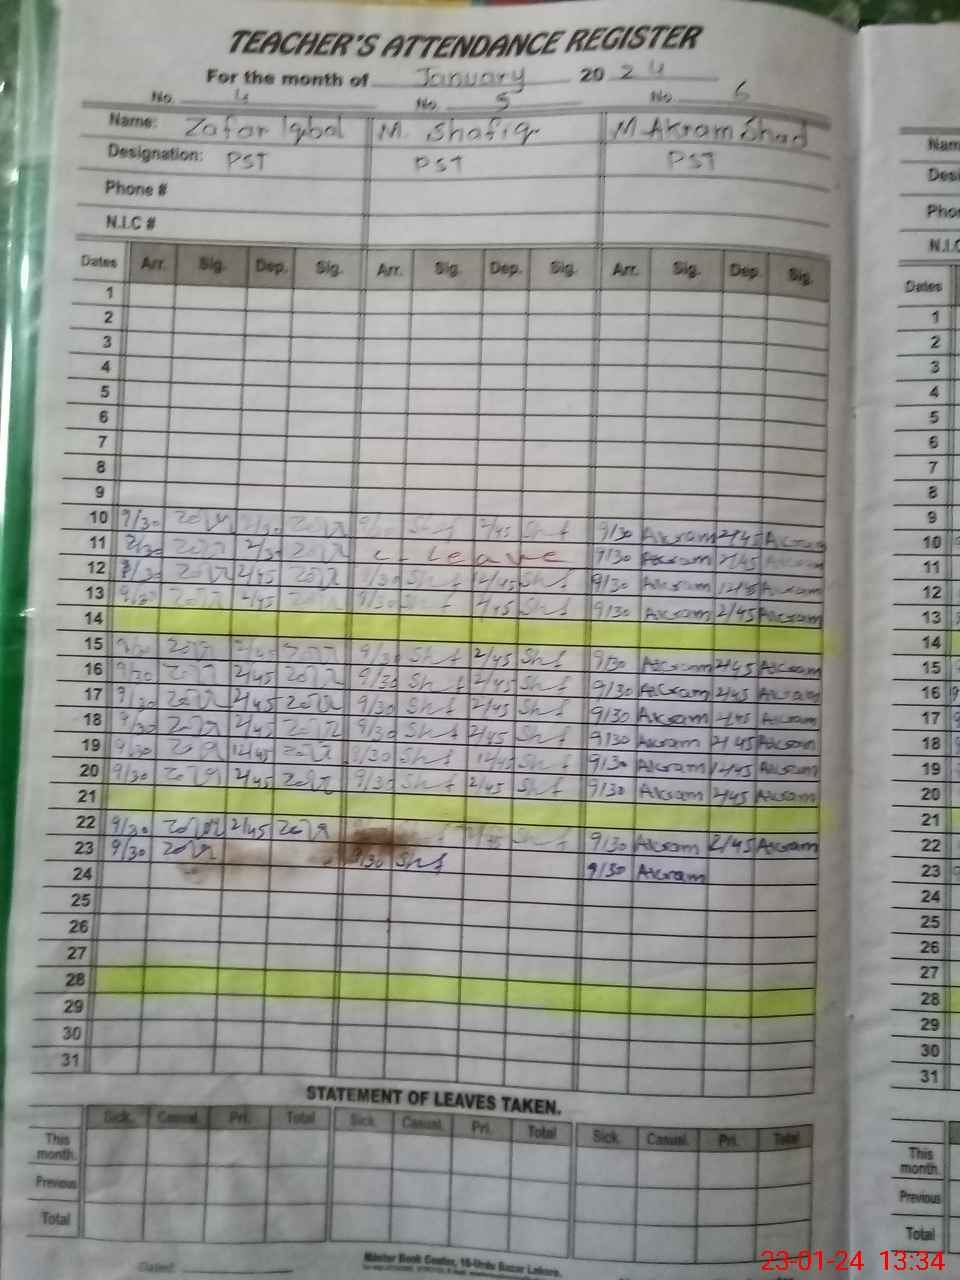 TEACHER'S ATTENDANCE REGISTER
For the month of January 2024
No. 4 No. 5 No. 6
Name: Zafar Iqbal M. Shafiq M Akram Shad
Designation: PST PST PST
Phone #
N.I.C #
Dates Arr. Sig. Dep. Sig. Arr. Sig. Dep. Sig. Arr. Sig. Dep. Sig.
1
2
3
4
5
6
7
8
9
10 9/30 2/30 9/30 Shf 2/45 Shf 9/30 Akram 2/45 Akram
11 9/30 2/30 C- Leave 9/30 Akram 2/45 Akram
12 9/30 2/45 9/30 Shf 12/45 Shf 9/30 Akram 12/45 Akram
13 9/30 2/45 9/30 Shf 2/45 Shf 9/30 Akram 2/45 Akram
14
15 9/30 2/45 9/30 Shf 2/45 Shf 9/30 Akram 2/45 Akram
16 9/30 2/45 9/30 Shf 2/45 Shf 9/30 Akram 2/45 Akram
17 9/30 2/45 9/30 Shf 2/45 Shf 9/30 Akram 2/45 Akram
18 9/30 2/45 9/30 Shf 2/45 Shf 9/30 Akram 2/45 Akram
19 9/30 12/45 9/30 Shf 12/45 Shf 9/30 Akram 12/45 Akram
20 9/30 2/45 9/30 Shf 2/45 Shf 9/30 Akram 2/45 Akram
21
22 9/30 2/45 2/45 Shf 9/30 Akram 2/45 Akram
23 9/30 9/30 Shf 9/30 Akram
24
25
26
27
28
29
30
31
STATEMENT OF LEAVES TAKEN.
Sick. Casual. Pri. Total Sick. Casual. Pri. Total Sick. Casual. Pri. Total
This month.
Previous
Total
Dated:
Master Book Center, 16-Urdu Bazar Lahore.
Dates
1
2
3
4
5
6
7
8
9
10
11
12
13
14
15
16
17
18
19
20
21
22
23
24
25
26
27
28
29
30
31
This month.
Previous
Total
23-01-24 13:34